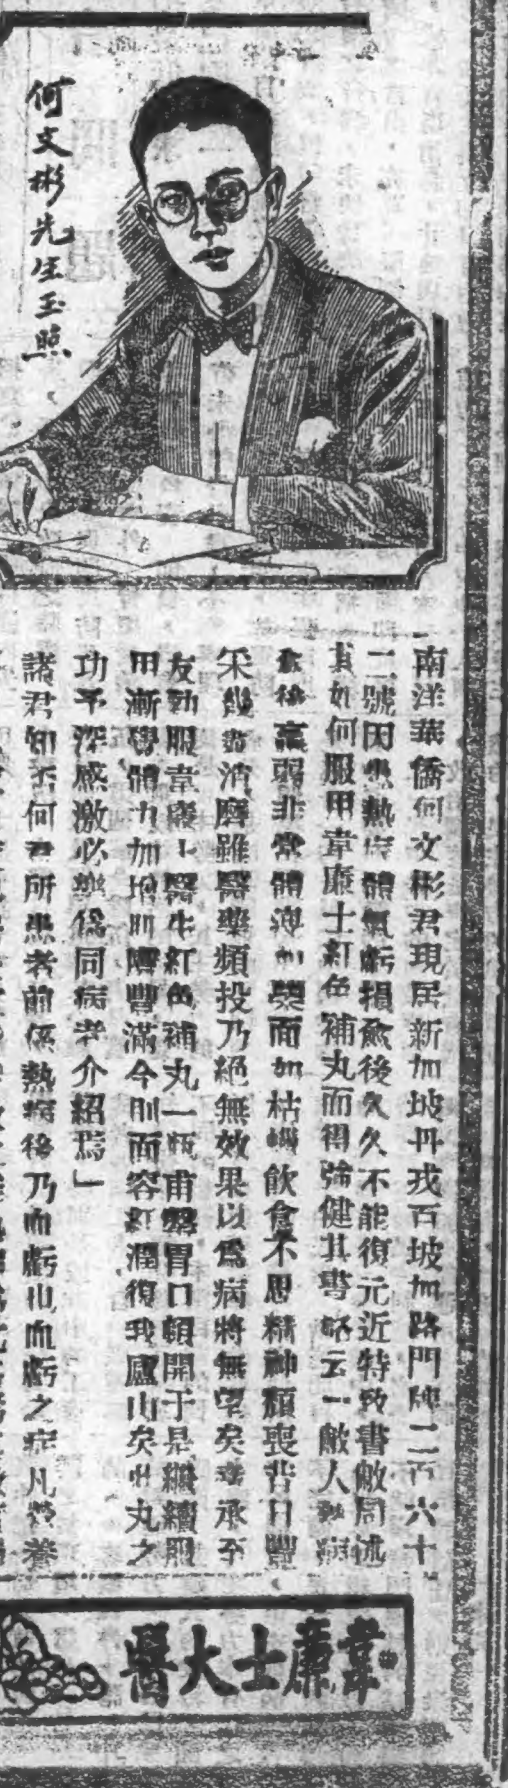 何文彬先生玉照
南洋華僑何文彬君現居新加坡丹戎百坡加路門牌二百六十
二號因患熱症體氣虧損愈後久久不能復元近特致書敝局述
其如何服用韋廉士紅色補丸而得強健其書略云「敝人熱病
愈後羸弱非常體薄如 面如枯 飲食不思精神頹喪昔日豐
采幾盡消磨雖醫藥頻投乃絕無效果以爲病將無望矣 承至
友勸服韋廉士醫生紅色補丸一瓶甫罄胃口頓開于是繼續服
用漸覺體力加增肌膚豐滿今則面容紅潤復我廬山矣此丸之
功予深感激必樂爲同病者介紹焉」
諸君知否何君所患者前係熱病後乃血虧也血虧之症凡營養
韋廉士大醫